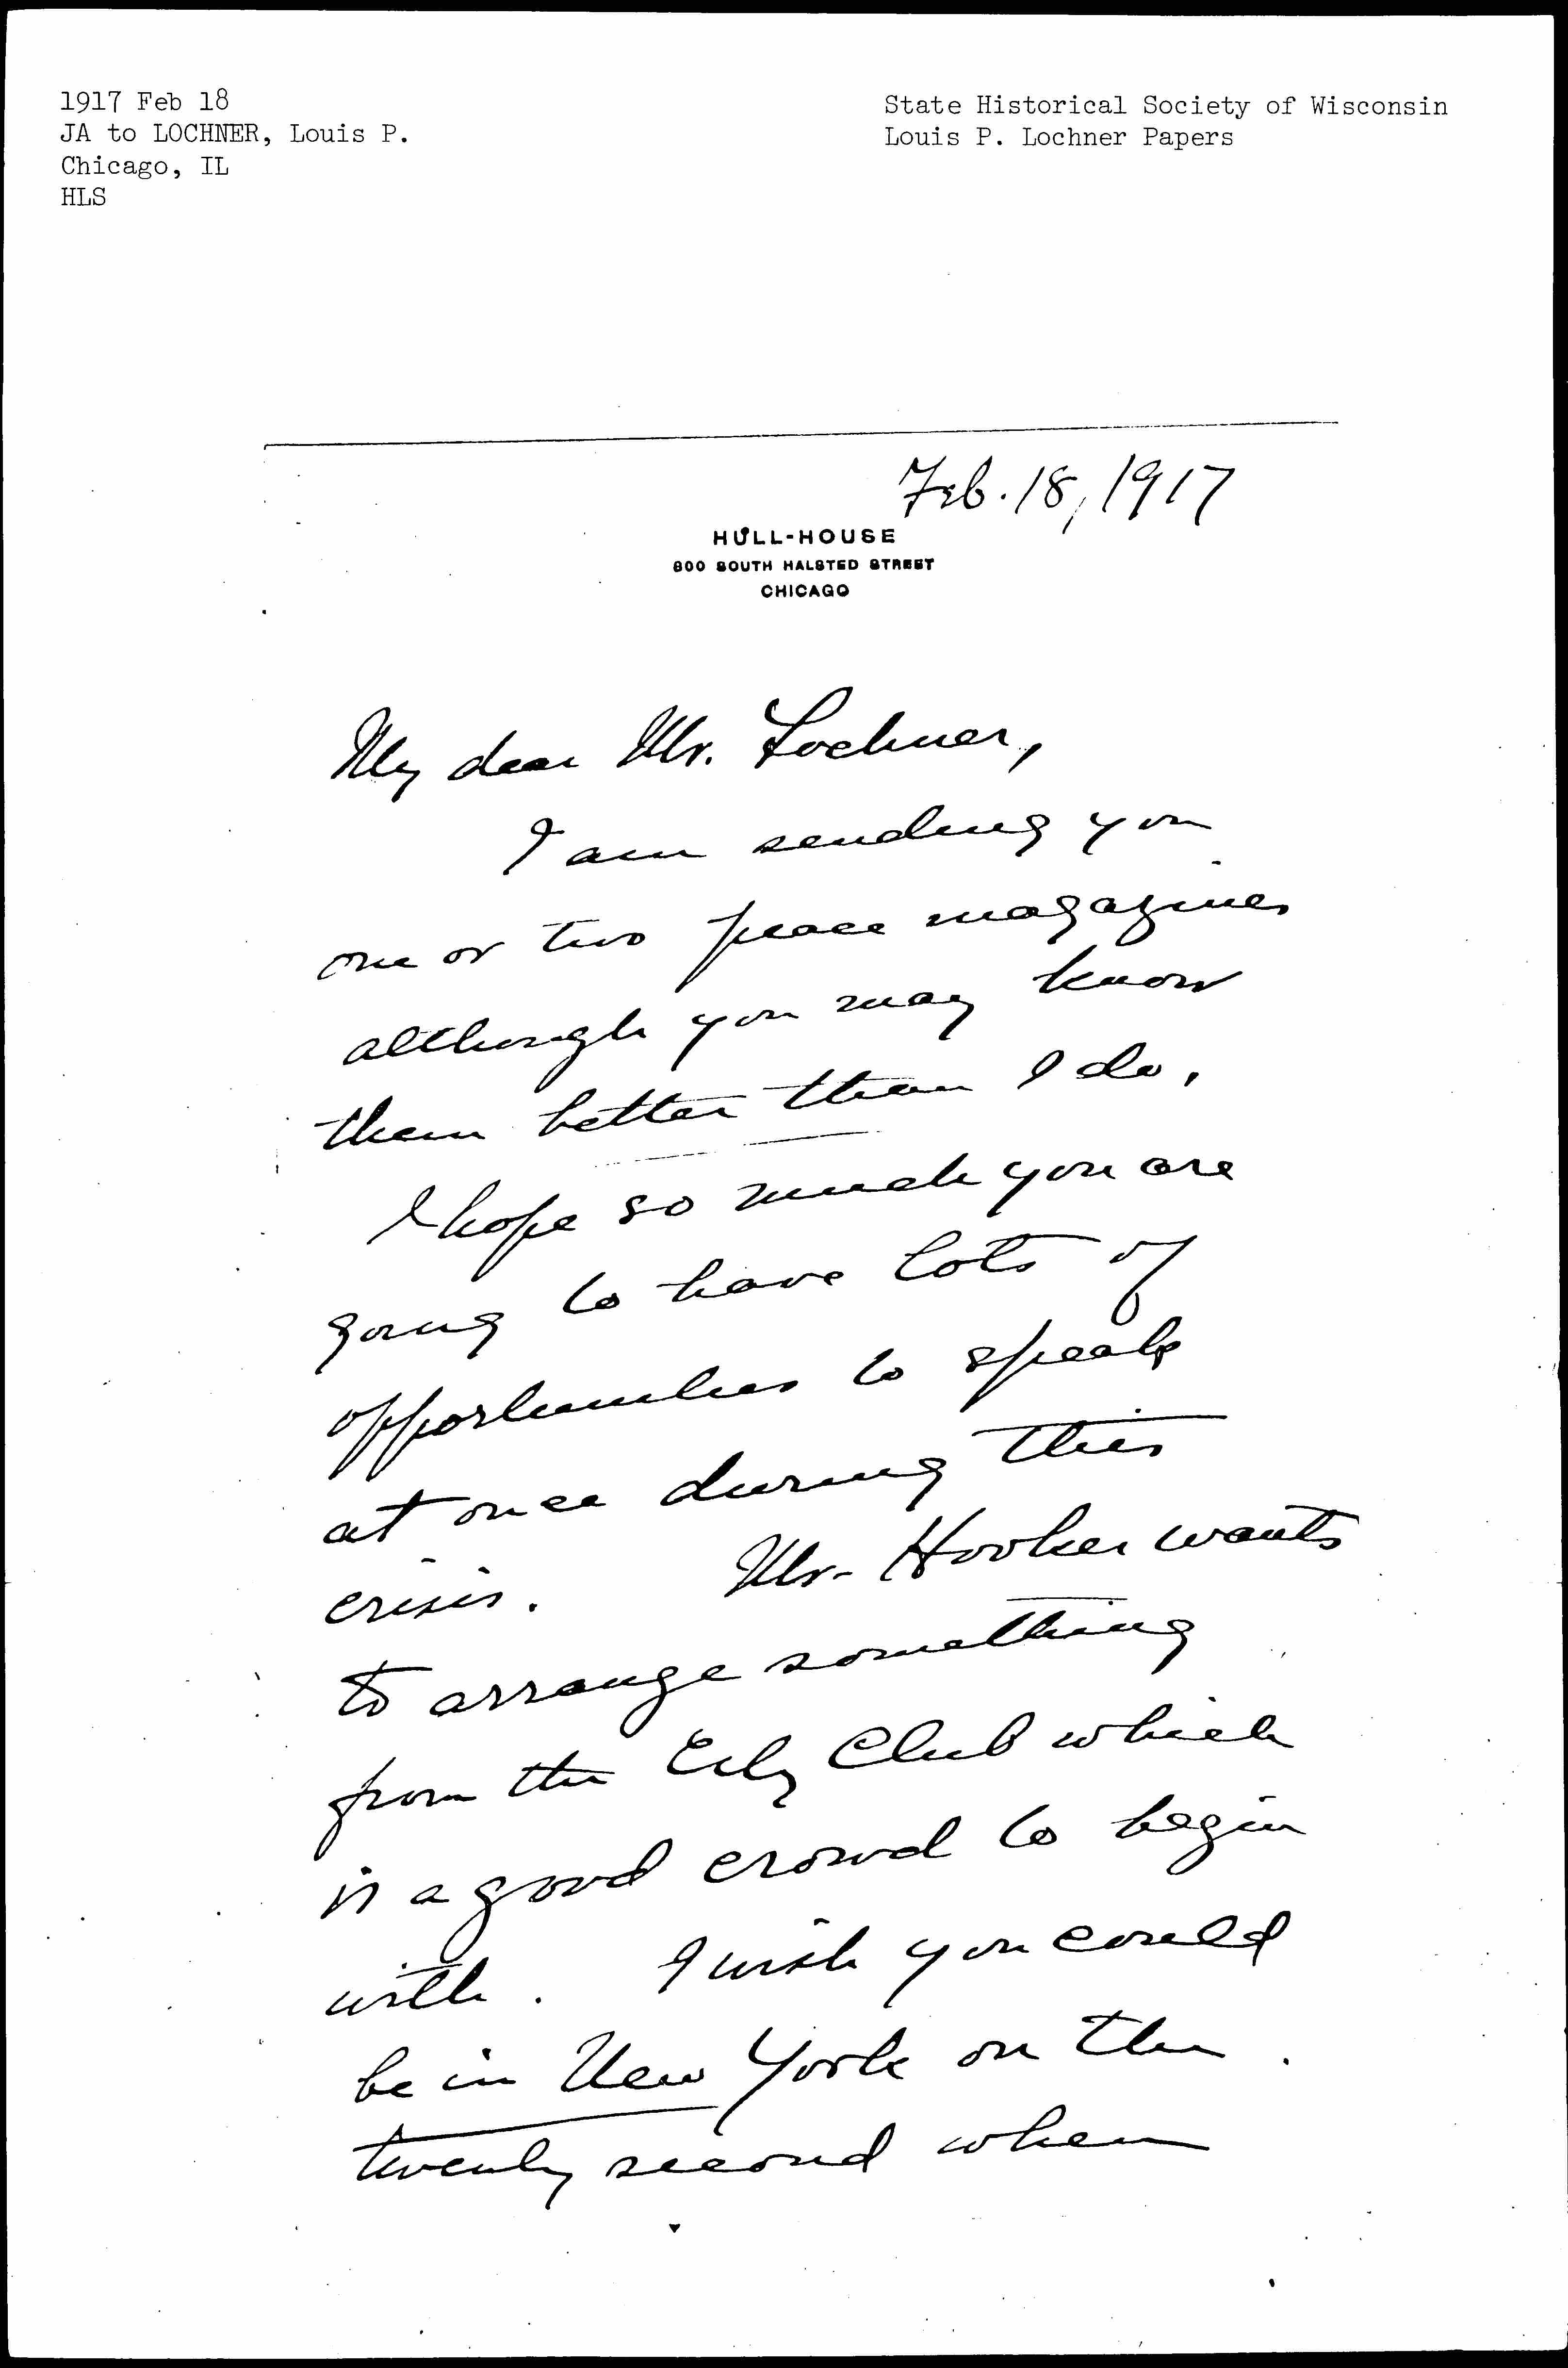 1917 Feb 18
JA to LOCHNER, Louis P.
Chicago, IL
HLS
State Historical Society of Wisconsin
Louis P. Lochner Papers
Feb. 18, 1917
HULL-HOUSE
800 SOUTH HALSTED STREET
CHICAGO
My dear Mr. Lochner,
I am sending you
one or two peace magazines
although you may know
them better than I do.
I hope so much you are
going to have lots of
opportunities to speak
at once during this
crisis. Mr. Hooker wants
to arrange something
from the City Club which
is a good crowd to begin
with. I wish you could
be in New York on the
twenty second when